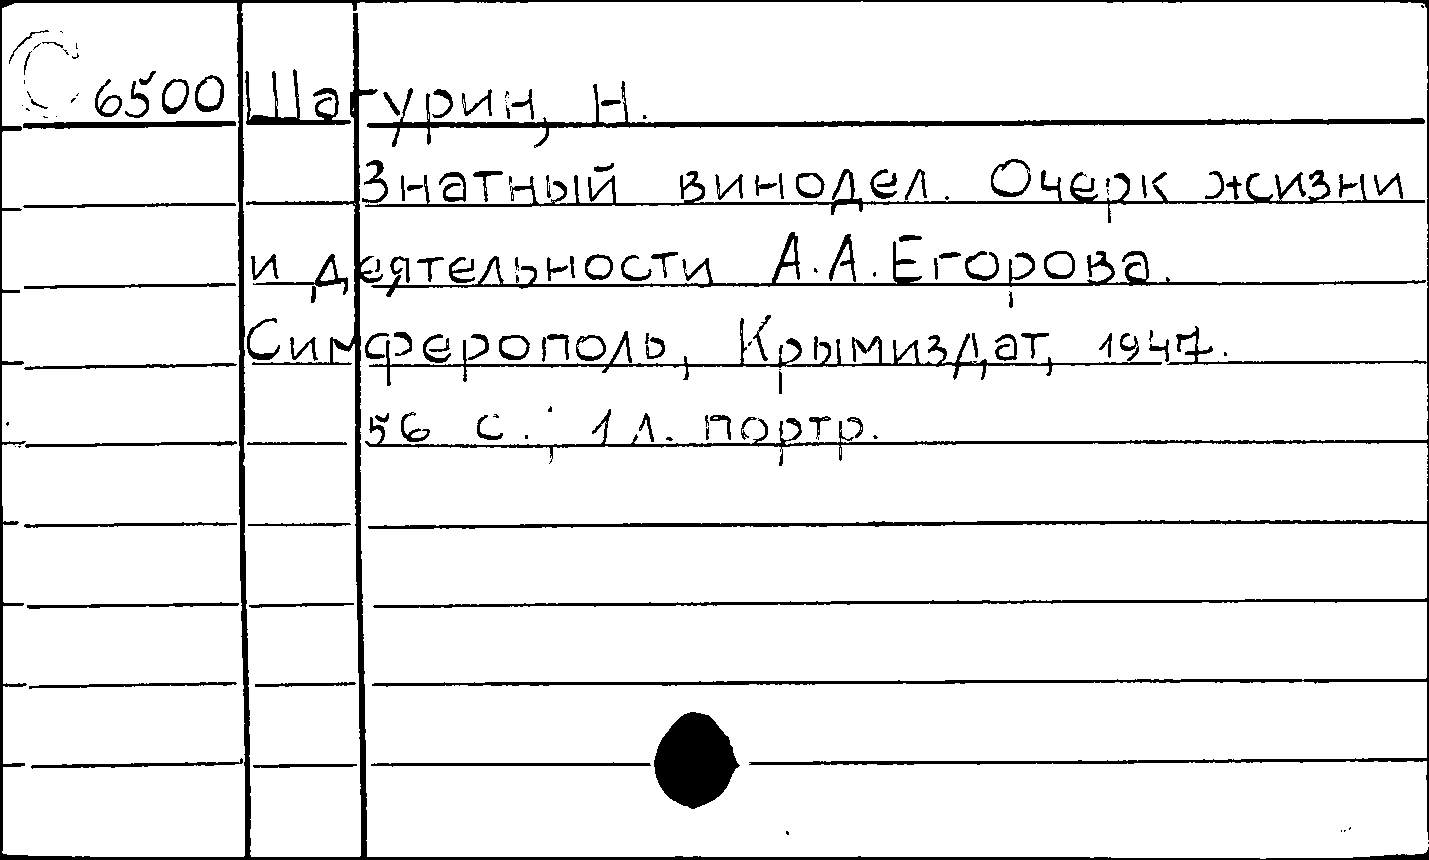 С 6500 Шагурин, Н.
Знатный винодел. Очерк жизни
и деятельности А.А.Егорова.
Симферополь, Крымиздат, 1947.
56 с.; 1 л. портр.